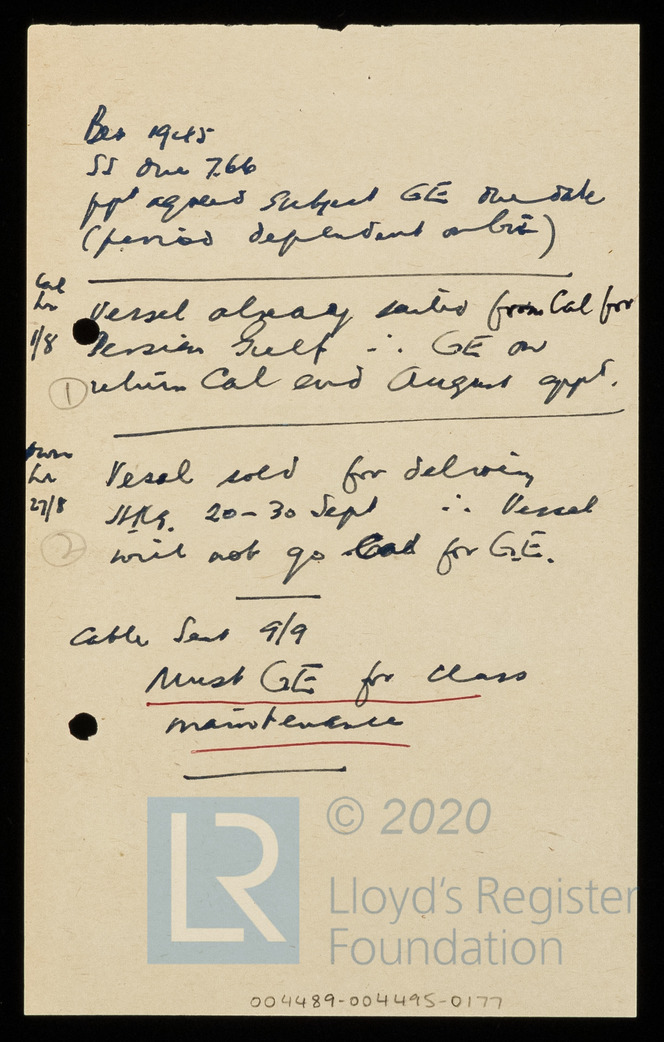 1945
SS due 7.66
ppt agreed subject GE due date
(period dependent on
Cal
Ltr
1/8
Vessel already sailed from Cal for
Persian Gulf ∴ GE on
1
return Cal end August appt.
Owners
Ltr
27/8
Vessel sold for delivery
HKg. 20-30 Sept ∴ Vessel
2
will not go Cal for G.E.
Cable Sent 9/9
Must GE for class
maintenance
LR
© 2020
Lloyd's Register
Foundation
004489-004495-0177